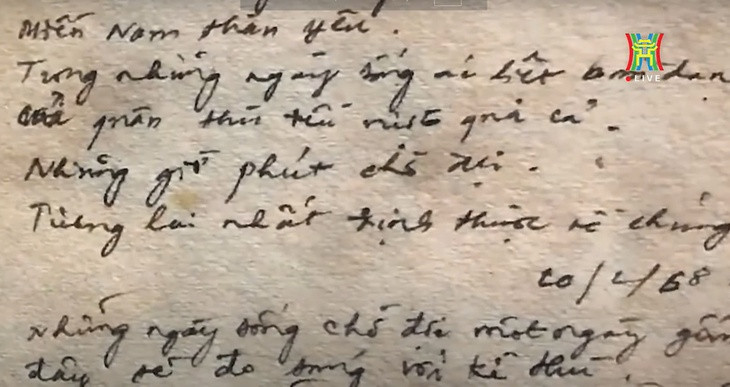 Miền Nam thân yêu.
Trong những ngày sống ác liệt bom đạn
quân thù tất cả.
Những giờ phút chờ đợi.
Tương lai nhất định thuộc về chúng
20/4/68
Những ngày sống chờ đợi một ngày gần
đây sẽ đọ súng với kẻ thù.
LIVE